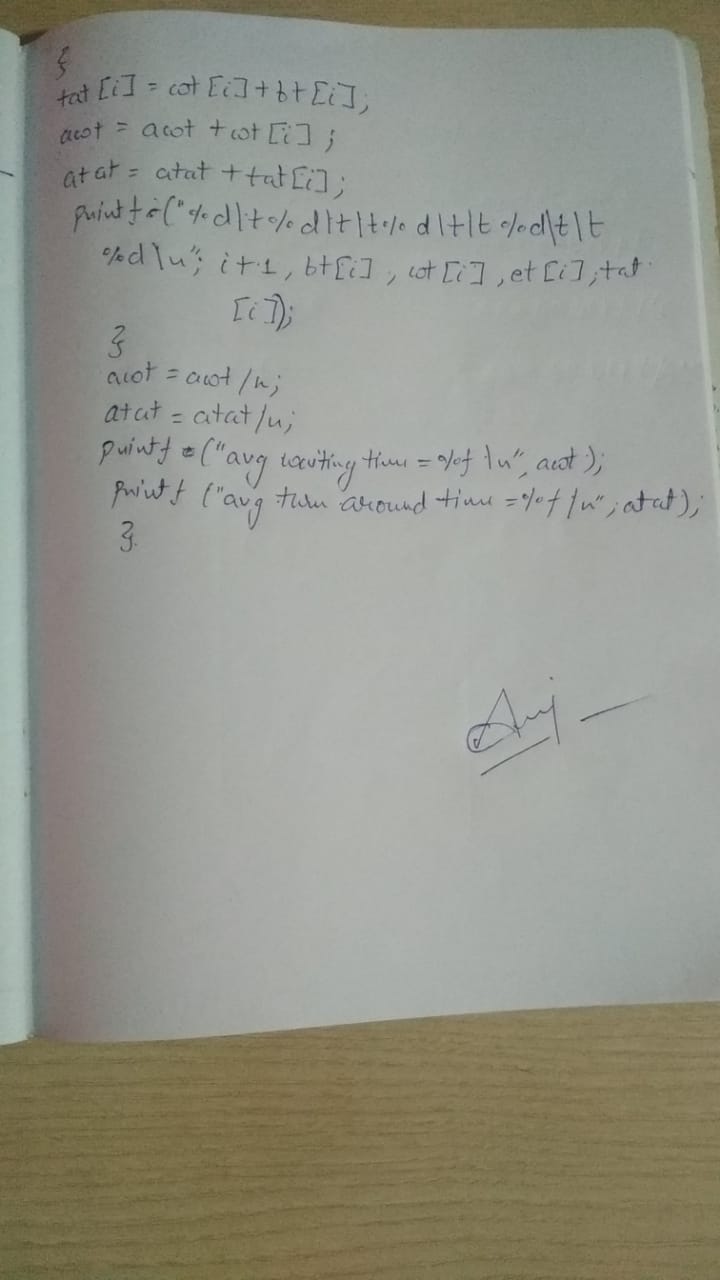 {
tat [i] = wt [i] + bt [i];
awt = awt + wt [i] ;
atat = atat + tat [i];
printf ("%d\t%d\t\t%d\t\t%d\t\t
%d\n"; i+1, bt[i] , wt [i] , et [i], tat
[i]);
}
awt = awt /n;
atat = atat/n;
printf ("avg waiting time = %f \n", awt );
printf ("avg turn around time = %f /n", atat);
}